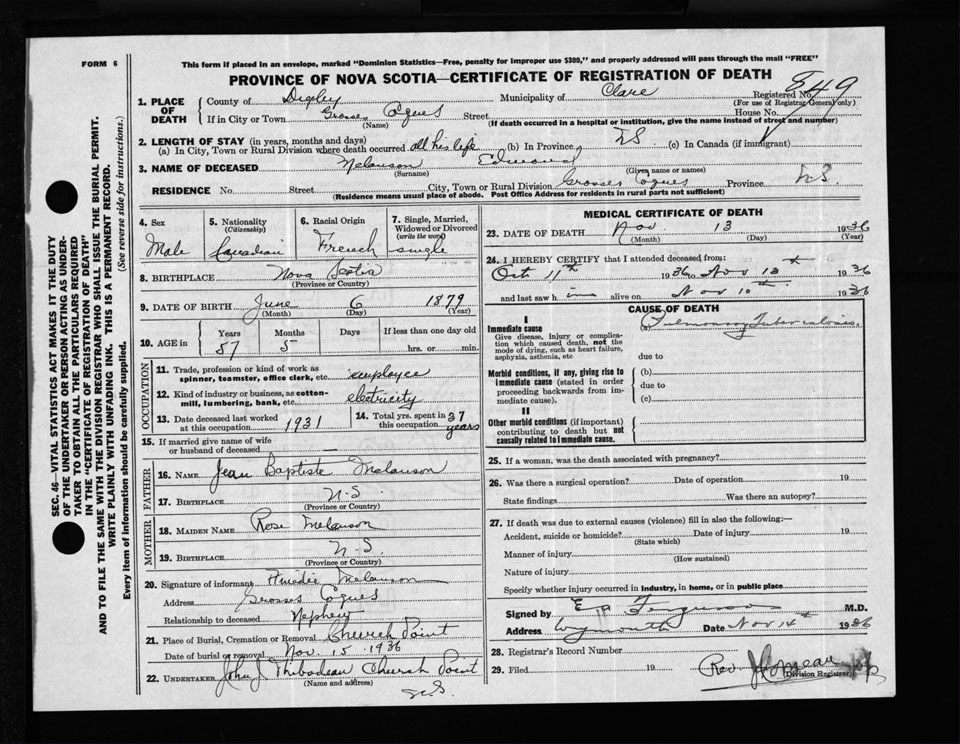 FORM 6
This form if placed in an envelope, marked "Dominion Statistics—Free, penalty for improper use $300," and properly addressed will pass through the mail "FREE"
PROVINCE OF NOVA SCOTIA—CERTIFICATE OF REGISTRATION OF DEATH
849
1. PLACE OF DEATH
County of Digby Municipality of Clare Registered No.
(For use of Registrar General only)
If in City or Town Grosses Coques Street House No.
(Name) (If death occurred in a hospital or institution, give the name instead of street and number)
2. LENGTH OF STAY (in years, months and days)
(a) In City, Town or Rural Division where death occurred all his life (b) In Province NS (c) In Canada (if immigrant)
3. NAME OF DECEASED Melanson Edmond
(Surname) (Given name or names)
RESIDENCE No. Street City, Town or Rural Division Grosses Coques Province N.S.
(Residence means usual place of abode. Post Office Address for residents in rural parts not sufficient)
4. Sex
Male
5. Nationality
(Citizenship)
Canadian
6. Racial Origin
French
7. Single, Married, Widowed or Divorced
(write the word)
single
8. BIRTHPLACE Nova Scotia
(Province or Country)
9. DATE OF BIRTH June 6 1879
(Month) (Day) (Year)
10. AGE in Years Months Days If less than one day old
57 5 hrs. or min.
OCCUPATION
11. Trade, profession or kind of work as
spinner, teamster, office clerk, etc. employee
12. Kind of industry or business, as cotton-
mill, lumbering, bank, etc. electricity
13. Date deceased last worked
at this occupation 1931
14. Total yrs. spent in
this occupation 37 years
15. If married give name of wife
or husband of deceased
FATHER
16. NAME Jean Baptiste Melanson
17. BIRTHPLACE N.S.
(Province or Country)
MOTHER
18. MAIDEN NAME Rose Melanson
19. BIRTHPLACE N.S.
(Province or Country)
20. Signature of informant Amedie Melanson
Address Grosses Coques
Relationship to deceased Nephew
21. Place of Burial, Cremation or Removal Church Point
Date of burial or removal Nov. 15 1936
22. UNDERTAKER John J Thibodeau Church Point
(Name and address)
N.S.
MEDICAL CERTIFICATE OF DEATH
23. DATE OF DEATH Nov. 13 1936
(Month) (Day) (Year)
24. I HEREBY CERTIFY that I attended deceased from:
Oct 11th 1936 to Nov 13th 1936
and last saw him alive on Nov 10th 1936
CAUSE OF DEATH
I
Immediate cause
Give disease, injury or complica-
tion which caused death, not the
mode of dying, such as heart failure,
asphyxia, asthenia, etc
Pulmonary Tuberculosis
due to
Morbid conditions, if any, giving rise to
immediate cause (stated in order
proceeding backwards from im-
mediate cause).
(b)
due to
(c)
II
Other morbid conditions (if important)
contributing to death but not
causally related to immediate cause.
25. If a woman, was the death associated with pregnancy?
26. Was there a surgical operation? Date of operation 19
State findings Was there an autopsy?
27. If death was due to external causes (violence) fill in also the following:—
Accident, suicide or homicide? Date of injury 19
(State which)
Manner of injury
(How sustained)
Nature of injury
Specify whether injury occurred in industry, in home, or in public place
Signed by E P Ferguson M.D.
Address Weymouth Date Nov 14th 1936
28. Registrar's Record Number
29. Filed 19 Rev.
(Division Registrar)
SEC. 46—VITAL STATISTICS ACT MAKES IT THE DUTY
OF THE UNDERTAKER OR PERSON ACTING AS UNDER-
TAKER TO OBTAIN ALL THE PARTICULARS REQUIRED
IN THE "CERTIFICATE OF REGISTRATION OF DEATH"
AND TO FILE THE SAME WITH THE DIVISION REGISTRAR WHO SHALL ISSUE THE BURIAL PERMIT.
WRITE PLAINLY WITH UNFADING INK. THIS IS A PERMANENT RECORD.
Every item of information should be carefully supplied. (See reverse side for instructions.)